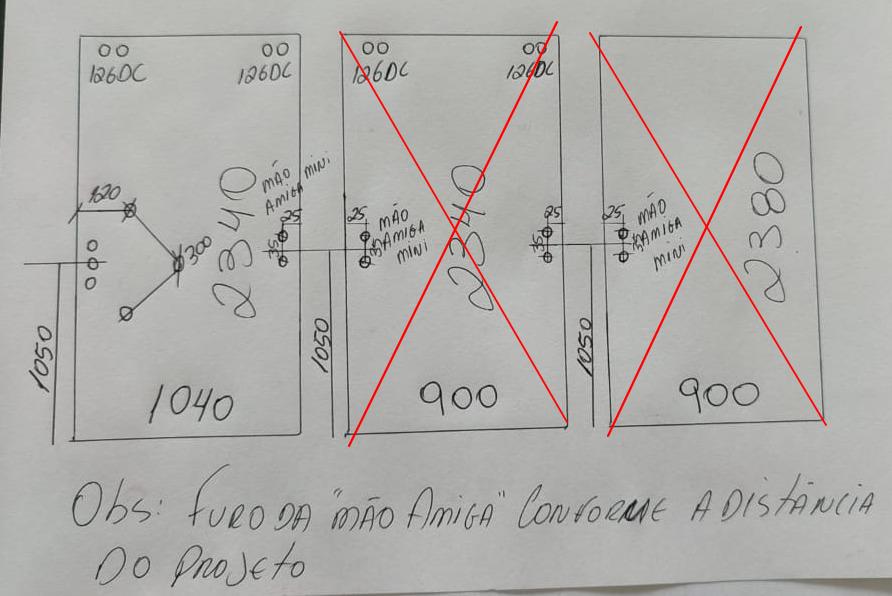 126DC 126DC
126DC 126DC
120
300
2340
MÃO AMIGA MINI
25
35
1050
1040
25
MÃO
AMIGA
MINI
35
2340
25
35
1050
900
25
MÃO
AMIGA
MINI
35
2380
1050
900
Obs: FURO DA "MÃO AMIGA" CONFORME A DISTÂNCIA
DO PROJETO